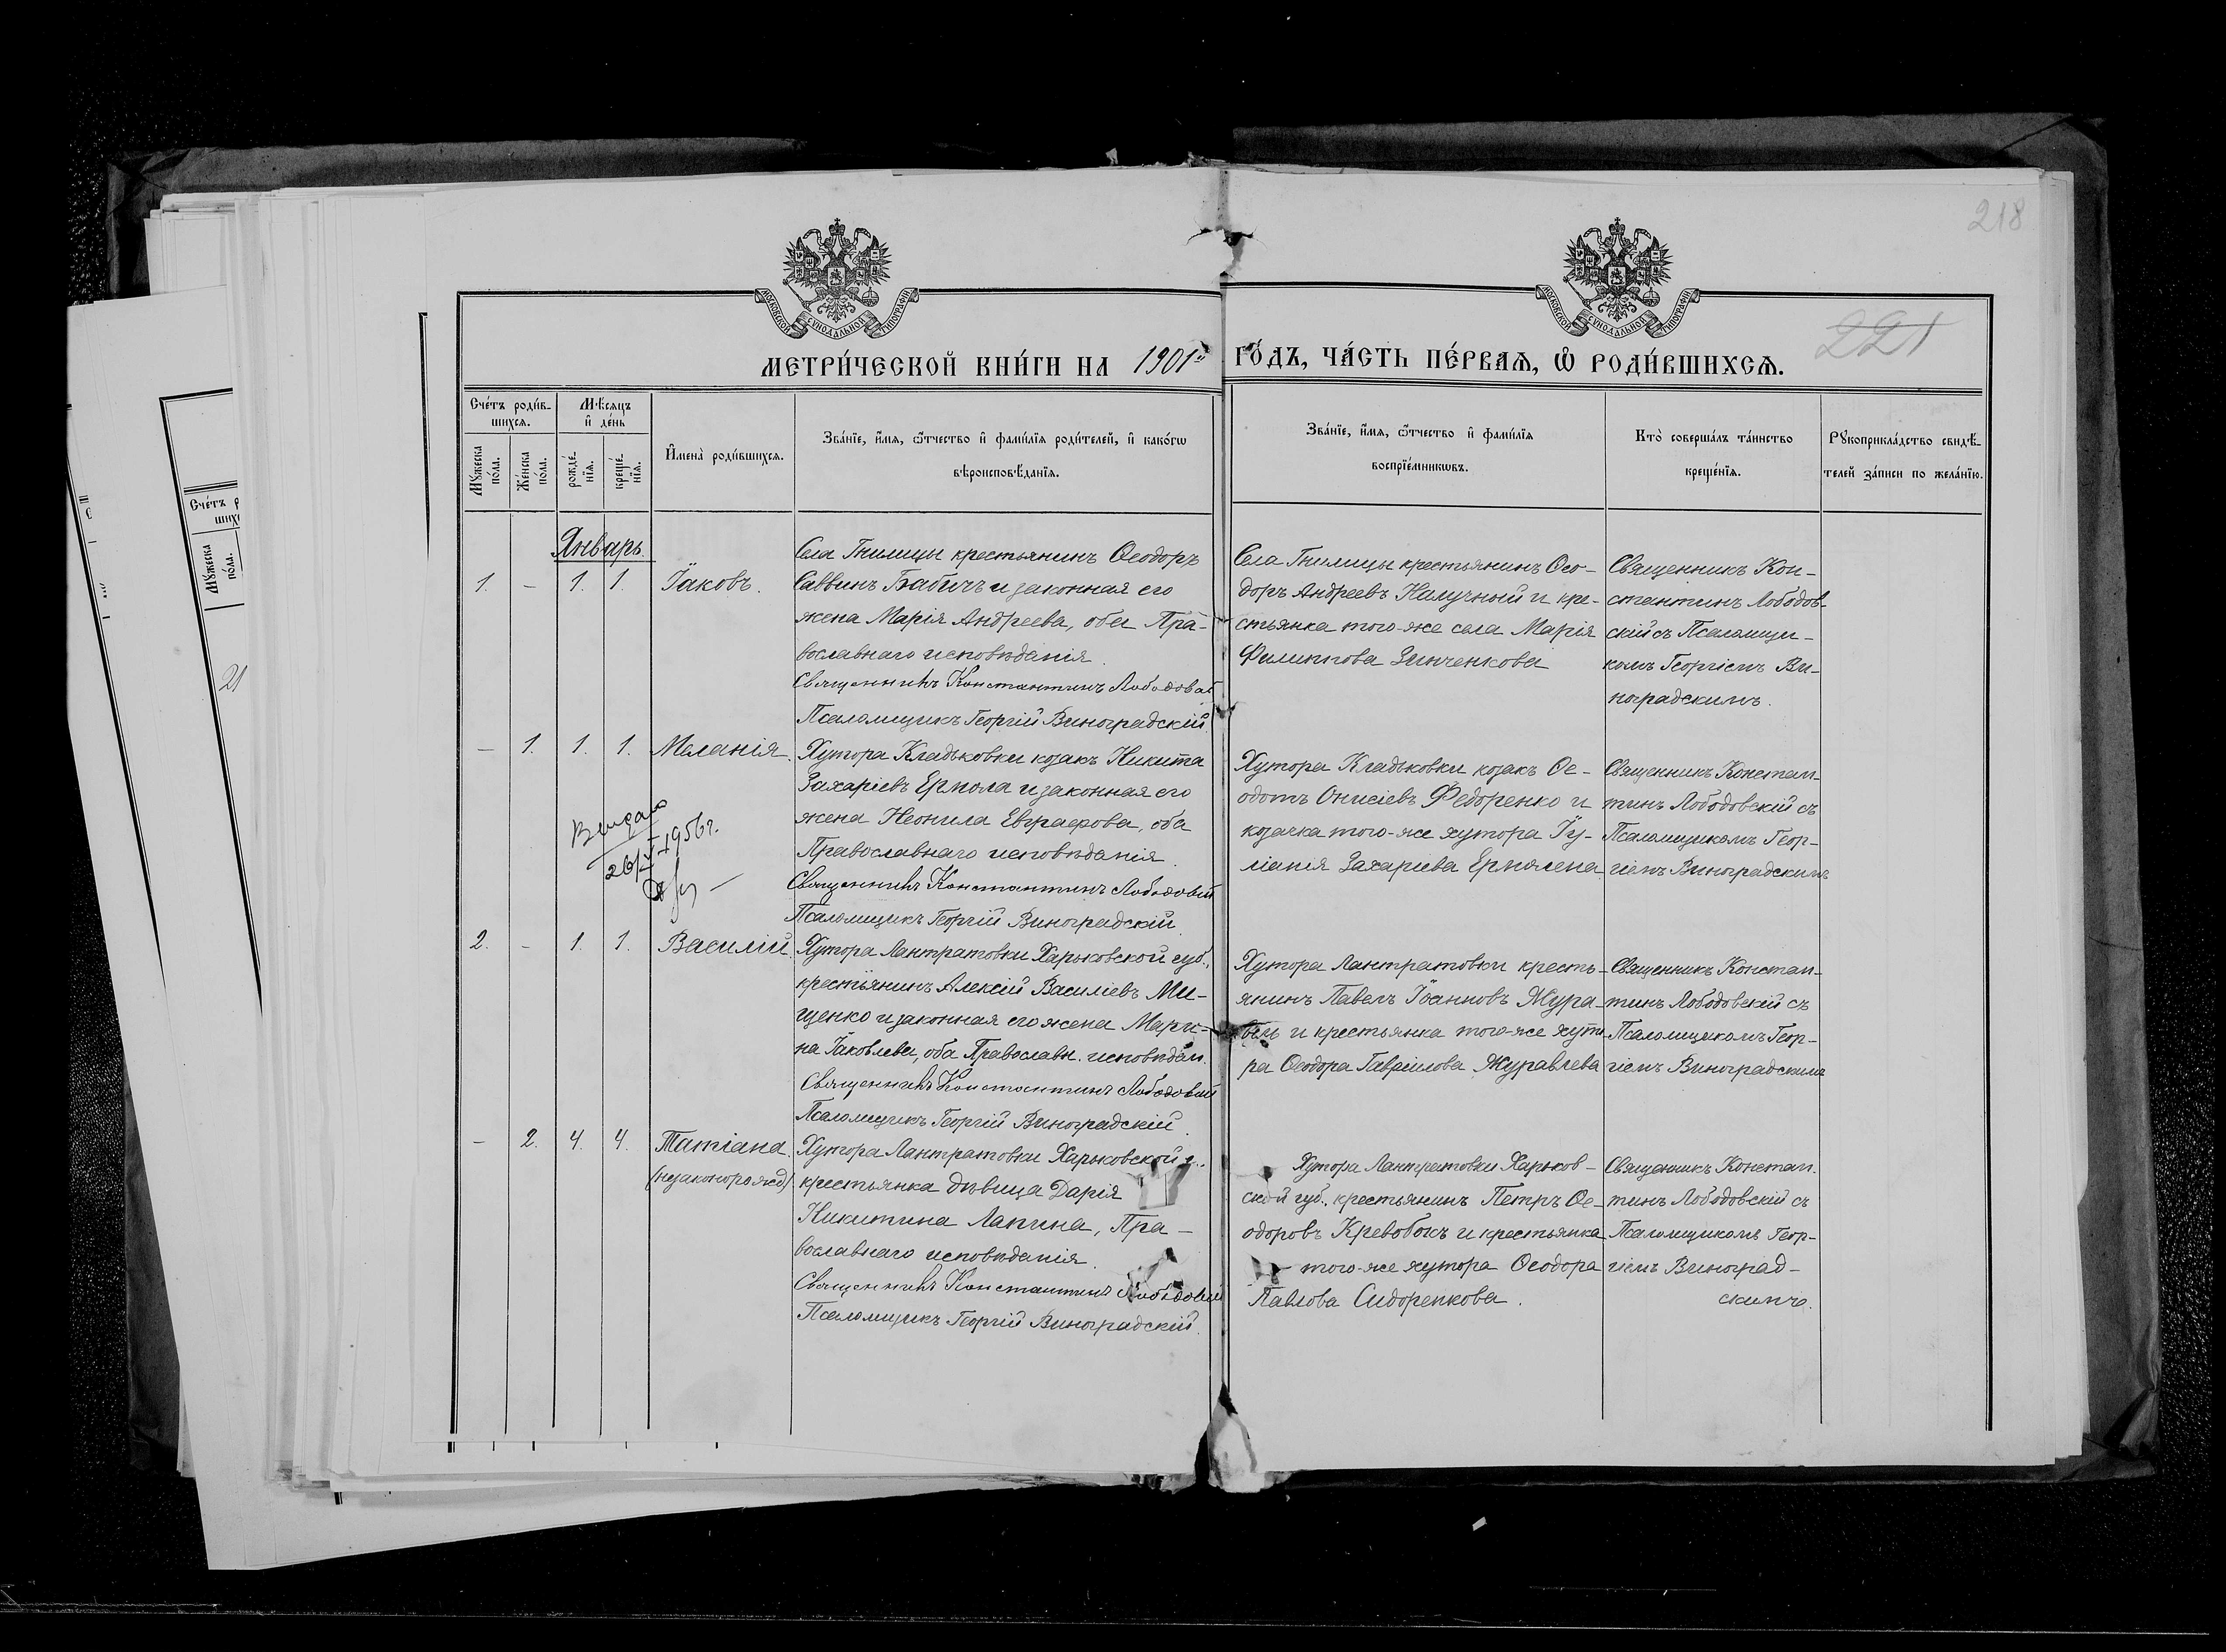 218
МОСКОВСКОЙ СѴНОДАЛЬНОЙ ТИПОГРАФІИ
МОСКОВСКОЙ СѴНОДАЛЬНОЙ ТИПОГРАФІИ
221
МЕТРИ́ЧЕСКОЙ КНИ́ГИ НА 1901й ГО́ДЪ, ЧА́СТЬ ПЕ́РВАѦ, Ѡ РОДИ́ВШИХСѦ.
Сче́тъ роди́в-
шихсѧ.
Мꙋжеска по́ла.
Же́нска по́ла.
Мѣ́сяцъ и҆ де́нь
рожде́-
нїѧ.
креще́-
нїѧ.
И҆мена̀ роди́вшихсѧ.
Зва́нїе, и҆́мѧ, ѻ҆́тчество и҆ фами́лїѧ роди́телей, и҆ како́гѡ
вѣроисповѣ́данїѧ.
Зва́нїе, и҆́мѧ, ѻ҆́тчество и҆ фами́лїѧ
воспрїе́мникѡвъ.
Кто̀ соверша́лъ та́инство
креще́нїѧ.
Рꙋкоприкла́дство свидѣ́-
телей за́писи по жела́нїю.
Январь.
1. – 1. 1. Іаковъ.
Села Гнилицы крестьянинъ Ѳеодоръ
Саввинъ Бабичъ и законная его
жена Марія Андреева, оба Пра-
вославнаго исповѣданія.
Священникъ Константинъ Лободовск
Псаломщикъ Георгій Виноградскій.
Села Гнилицы крестьянинъ Ѳео-
доръ Андреевъ Калучный и кре-
стьянка того-же села Марія
Филиппова Зинченкова
Священникъ Кон-
стантинъ Лободов-
скій съ Псаломщи-
комъ Георгіемъ Ви-
ноградскимъ.
– 1. 1. 1. Меланія.
Хутора Кладьковки козакъ Никита
Захаріевъ Ермола и законная его
жена Неонила Евграфова, оба
Православнаго исповѣданія.
Священникъ Константинъ Лободовскій
Псаломщикъ Георгій Виноградскій.
1956г.
Хутора Кладьковки козакъ Ѳе-
одотъ Онисіевъ Федоренко и
козачка того-же хутора Іу-
ліанія Захаріева Ермолена
Священникъ Констан-
тинъ Лободовскій съ
Псаломщикомъ Геор-
гіемъ Виноградскимъ
2. – 1. 1. Василій.
Хутора Лантратовки Харьковской губ.,
крестьянинъ Алексій Василіевъ Ми-
щенко и законная его жена Мари-
на Іаковлева, оба Православн. исповѣдан.
Священникъ Константинъ Лободовскій
Псаломщикъ Георгій Виноградскій.
Хутора Лантратовки кресть-
янинъ Павелъ Іоанновъ Жура-
вель и крестьянка того-же хуто-
ра Ѳеодора Гавріилова Журавлева
Священникъ Констан-
тинъ Лободовскій съ
Псаломщикомъ Геор-
гіемъ Виноградскимъ
– 2. 4. 4. Татіана.
(незаконорожд)
Хутора Лантратовки Харьковской г..
крестьянка дѣвица Дарія
Никитина Лапина, Пра-
вославнаго исповѣданія.
Священникъ Константинъ Лободовскій
Псаломщикъ Георгій Виноградскій.
Хутора Лантратовки Харьков-
ской губ. крестьянинъ Петръ Ѳе-
одоровъ Кревобокъ и крестьянка
того-же хутора Ѳеодора
Павлова Сидоренкова.
Священникъ Констан.
тинъ Лободовскій съ
Псаломщикомъ Геор-
гіемъ Виноград-
скимъ.
Сче́тъ р
шихс
Мꙋжеска
по́ла.
21